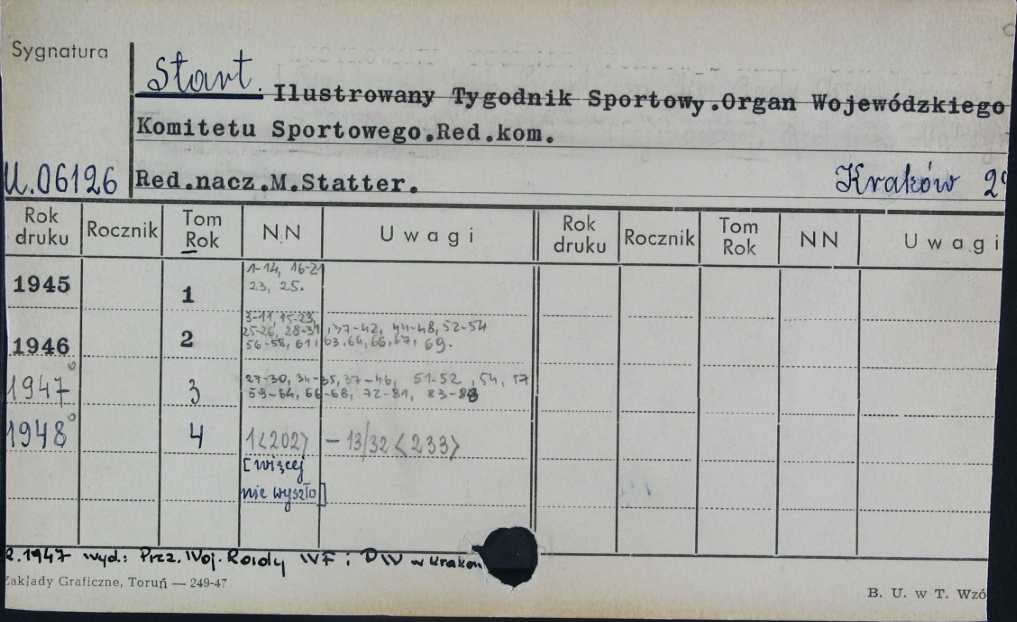 Sygnatura
Start. Ilustrowany Tygodnik Sportowy.Organ Wojewódzkiego
Komitetu Sportowego.Red.kom.
U.06126 Red.nacz.M.Statter. Kraków 2°
Rok druku Rocznik Tom Rok NN Uwagi Rok druku Rocznik Tom Rok NN Uwagi
1945 1 1-14, 16-21
23, 25.
1946 2 3-11, 15-23,
25-26, 28-31, 37-42, 44-48, 52-54
56-58, 61, 63, 64, 66, 67, 69.
1947° 3 27-30, 34-35, 37-46, 51-52, 54, 57
59-64, 66-68, 72-81, 83-88
1948° 4 1<202> - 13/32 <233>
[więcej
nie wyszło]
R.1947 wyd: Prz. Woj. Rady WF i PW w Krakow
Zakłady Graficzne, Toruń — 249-47
B. U. w T. Wzó